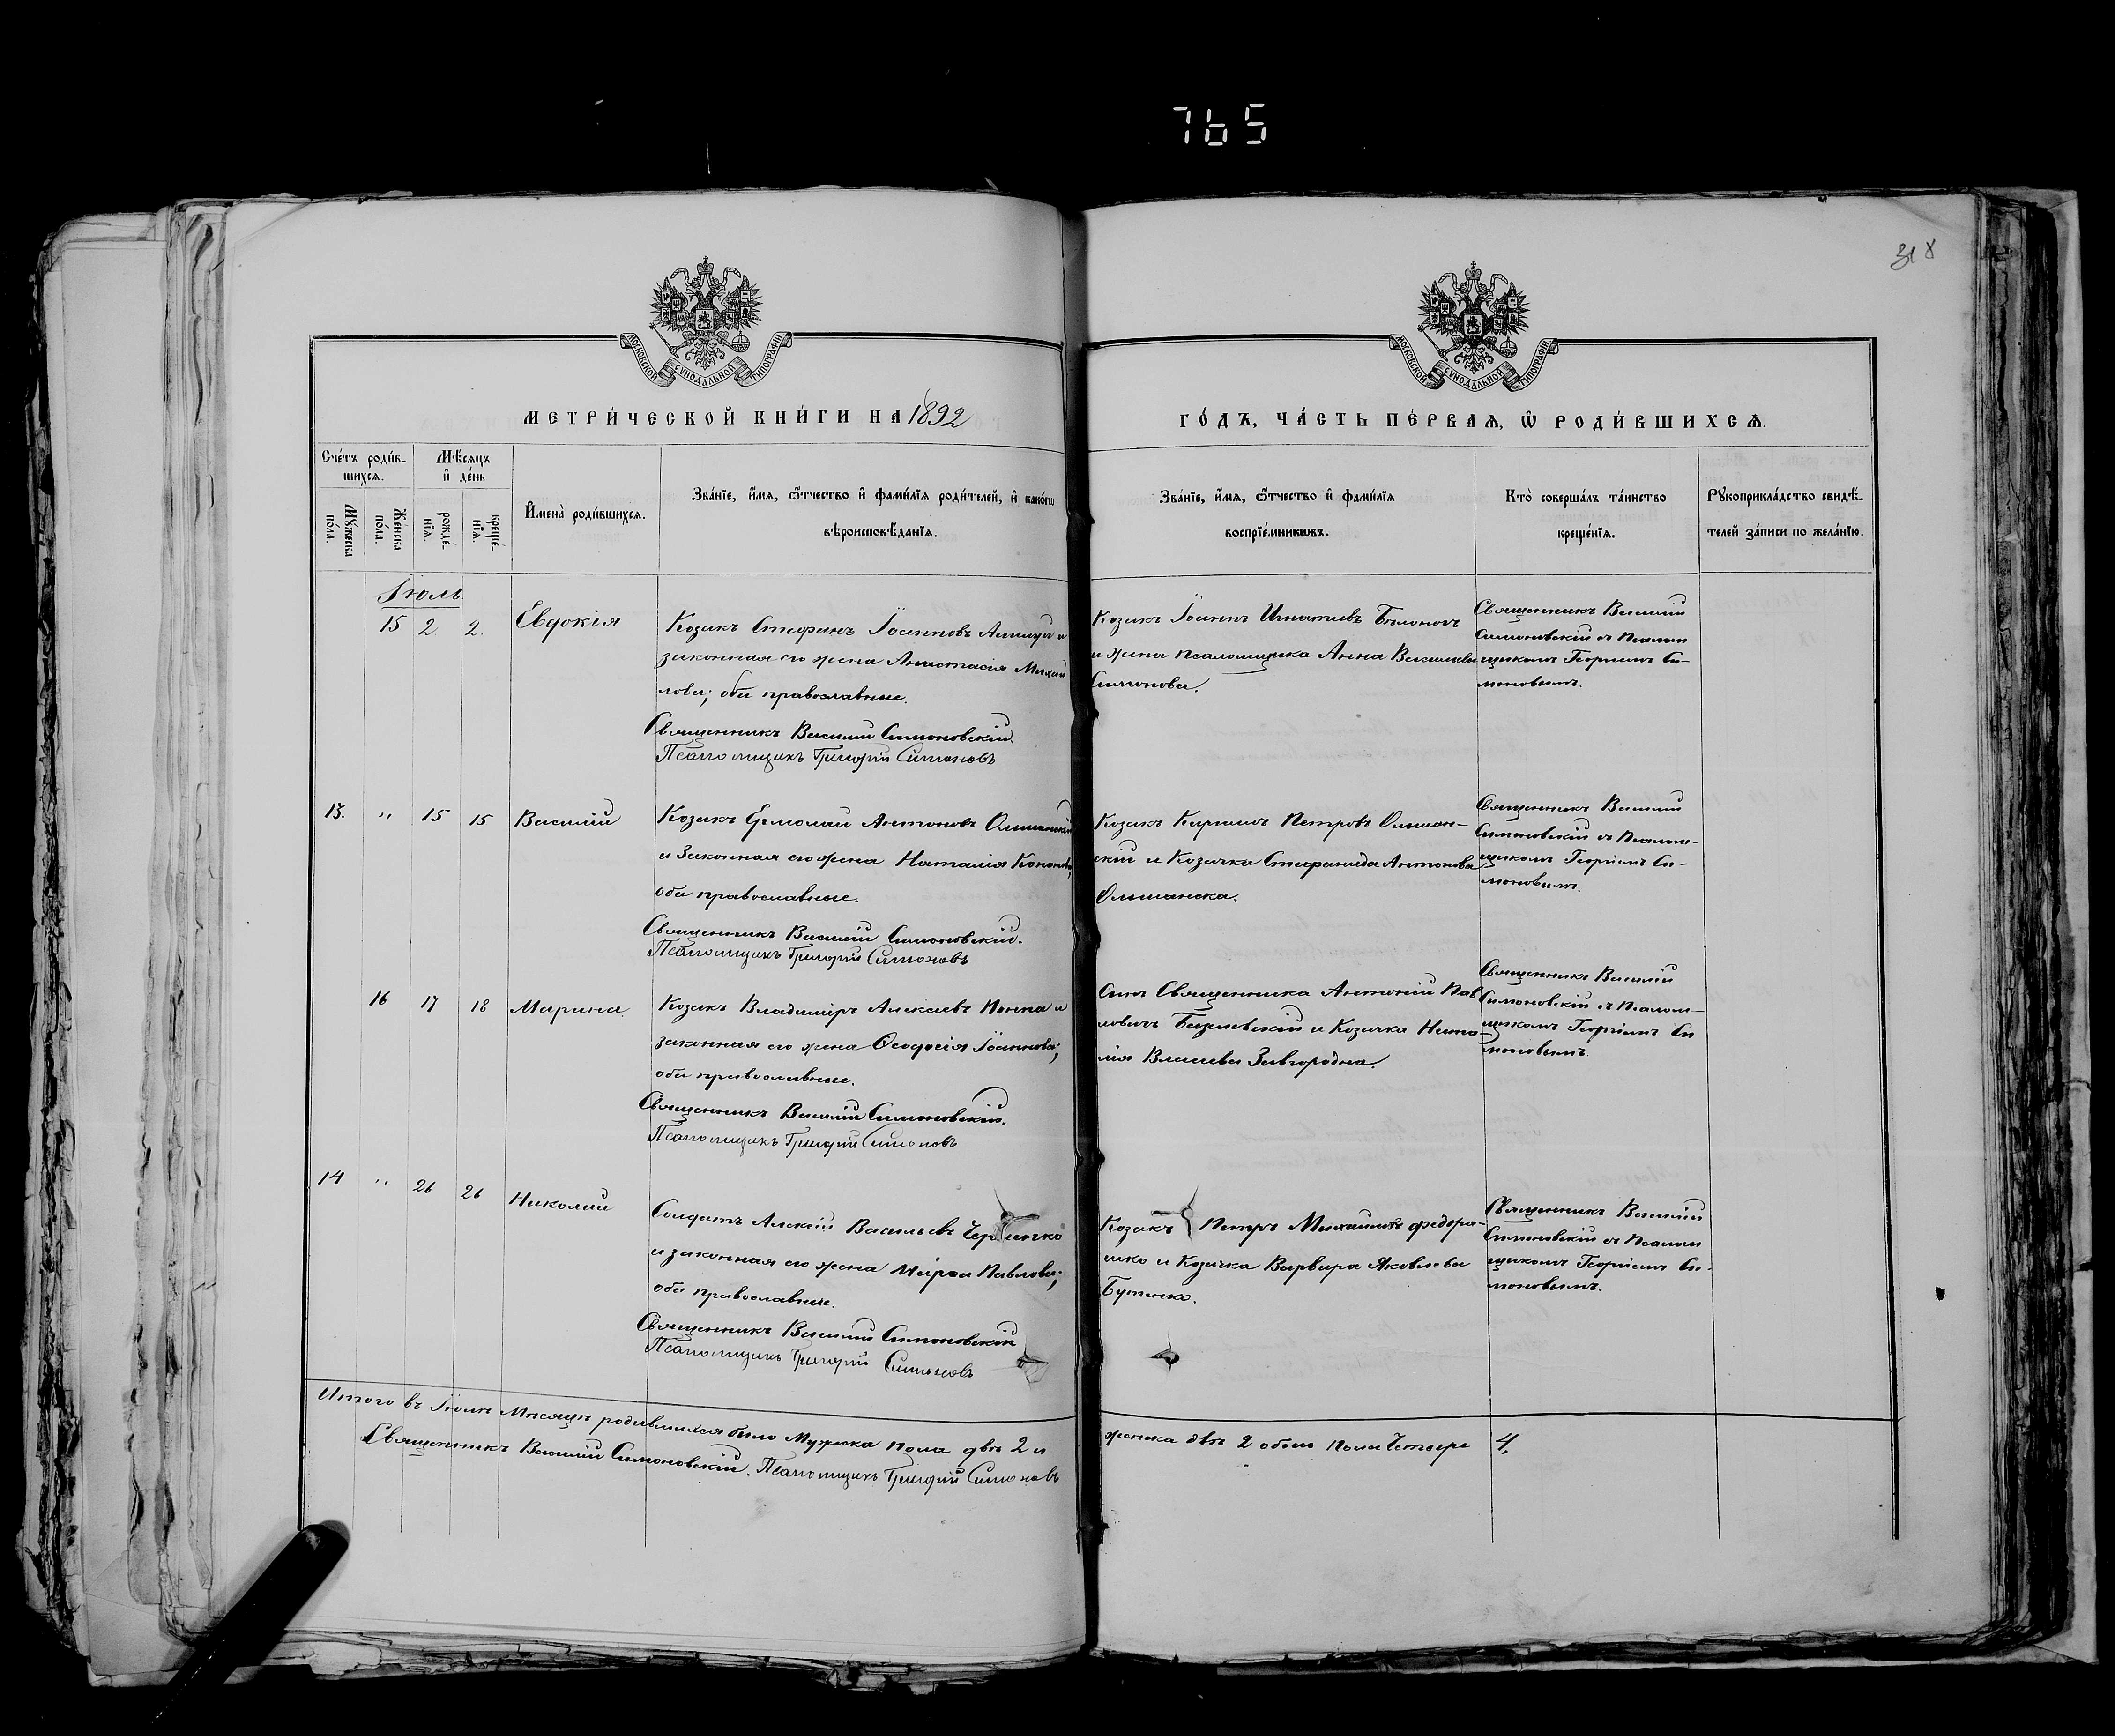 765
318
МОСКОВСКОЙ СУНОДАЛЬНОЙ ТИПОГРАФІИ
МОСКОВСКОЙ СУНОДАЛЬНОЙ ТИПОГРАФІИ
МЕТРИ́ЧЕСКОЙ КНИ́ГИ НА 1892
ГО́ДЪ, ЧА́СТЬ ПЕ́РВАѦ, Ѡ҆ РОДИ́ВШИХСѦ.
Сче́тъ роди́в-
шихсѧ.
Мꙋ́жеска по́ла.
Же́нска по́ла.
Мѣ́сѧцъ
и҆ де́нь
рожде́-нїѧ.
креще́-нїѧ.
И҆мена̀ роди́вшихсѧ.
Зва́нїе, и҆́мѧ, ѻ҆́тчество и҆ фами́лїѧ роди́телей, и҆ како́гѡ
вѣроисповѣ́данїѧ.
Зва́нїе, и҆́мѧ, ѻ҆́тчество и҆ фами́лїѧ
воспрїе́мникѡвъ.
Кто̀ соверша́лъ та́инство
креще́нїѧ.
Рꙋкоприкла́дство свидѣ́-
телей за́писи по жела́нїю.
Іюль
15 2. 2. Евдокія
Козакъ Стефанъ Іоанновъ и
законная его жена Анастасія Михаи
лова; оба православные.
Священникъ Василій Симоновскій.
Псаломщикъ Григорій Симоновъ
Козакъ Іоаннъ Игнатіевъ
и жена псаломщика Анна Василіева
Симонова.
Священникъ Василій
Симоновскій съ Псалом
щикомъ Георгіемъ Си-
моновымъ.
13. " 15 15 Василій
Козакъ Ермолай Антоновъ Ольшанскій
и Законная его жена Наталія Кононова,
оба православные.
Священникъ Василій Симоновскій.
Псаломщикъ Григорій Симоновъ
Козакъ Кириллъ Петровъ Ольшан-
скій и Козачка Стефанида Антонова
Ольшанска.
Священникъ Василій
Симоновскій съ Псалом-
щикомъ Георгіемъ Си-
моновымъ.
16 17 18 Марина.
Козакъ Владиміръ Алексіевъ и
законная его жена Ѳеодосія Іоаннова;
оба православные.
Священникъ Василій Симоновскій.
Псаломщикъ Григорій Симоновъ
Сынъ Священника Антоній Пав
ловичъ Базилевскій и Козачка Ната-
лія Завгородна.
Священникъ Василій
Симоновскій съ Псалом-
щикомъ Георгіемъ Си
моновымъ.
14 " 26 26 Николай
Солдатъ Алексій Васильевъ
и законная его жена Марѳа Павлова;
оба православные.
Священникъ Василій Симоновскій
Псаломщикъ Григорій Симоновъ
Козакъ Петръ Михайловъ Федора-
шко и Козачка Варвара Яковлева
Бутенко.
Священникъ Василій
Симоновскій съ Псалом
щикомъ Георгіемъ Си-
моновымъ.
Итого въ Іюлѣ Мѣсяцѣ родившихся было Мужска пола двѣ 2 и
женска двѣ 2 обоего пола Четыре 4.
Священникъ Василій Симоновскій. Псаломщикъ Григорій Симоновъ